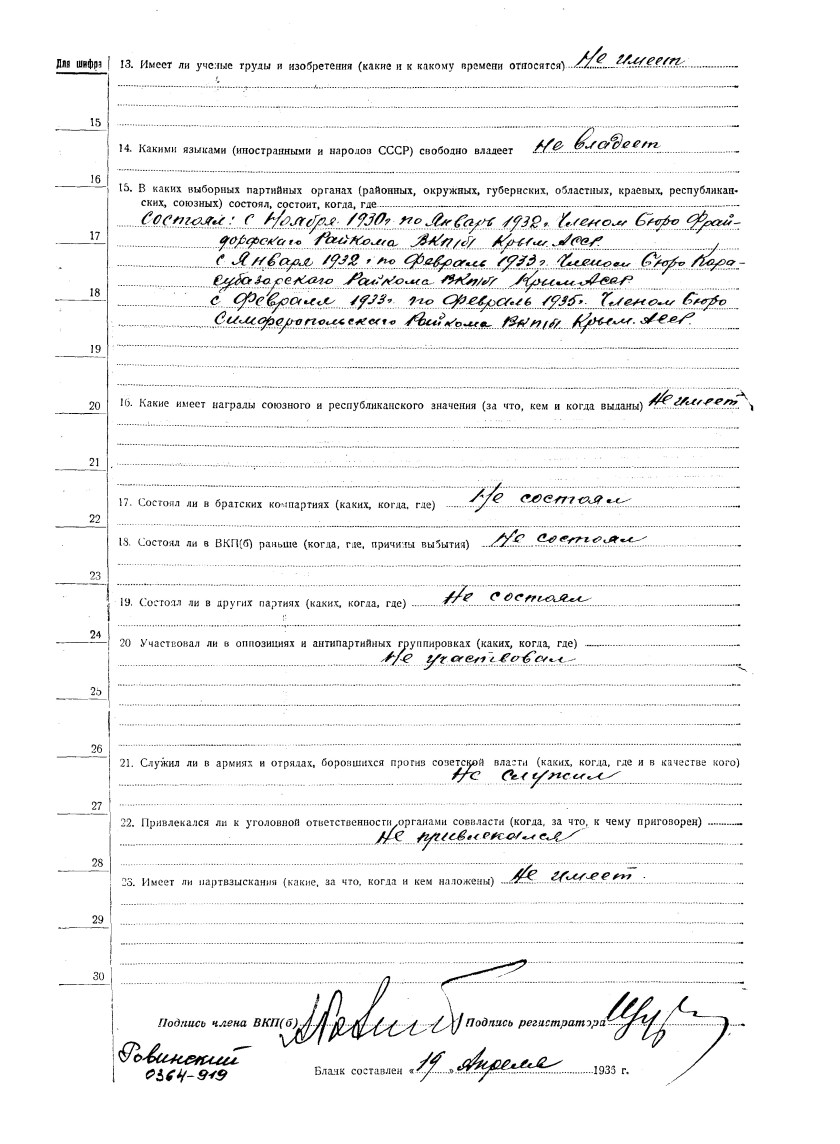 Для шифра
13. Имеет ли ученые труды и изобретения (какие и к какому времени относятся) Не имеет
15
14. Какими языками (иностранными и народов СССР) свободно владеет Не владеет
16
15. В каких выборных партийных органах (районных, окружных, губернских, областных, краевых, республикан-
ских, союзных) состоял, состоит, когда, где
Состоял: с Ноября 1930г по Январь 1932г. Членом бюро Фрай-
17
дорфскаго Райкома ВКП/б/ Крым АССР
с Января 1932 г по Февраль 1933г. Членом бюро Кара-
субазарскаго Райкома ВКП/б/ Крым АССР
18
с Февраля 1933г. по Февраль 1935г. Членом бюро
Симферопольскаго Райкома ВКП/б/. Крым. АССР.
19
20
16. Какие имеет награды союзного и республиканского значения (за что, кем и когда выданы) Не имеет
21
17. Состоял ли в братских компартиях (каких, когда, где) Не состоял
22
18. Состоял ли в ВКП(б) раньше (когда, где, причины выбытия) Не состоял
23
19. Состоял ли в других партиях (каких, когда, где) Не состоял
24
20 Участвовал ли в оппозициях и антипартийных группировках (каких, когда, где)
Не участвовал
25
26
21. Служил ли в армиях и отрядах, боровшихся против советской власти (каких, когда, где и в качестве кого)
Не служил
27
22. Привлекался ли к уголовной ответственности органами соввласти (когда, за что, к чему приговорен)
Не привлекался
28
23. Имеет ли партвзыскания (какие, за что, когда и кем наложены) Не имеет.
29
30
Подпись члена ВКП(б) Подпись регистратора
Ровинский
0364-919
Бланк составлен «19» Апреля 1936 г.